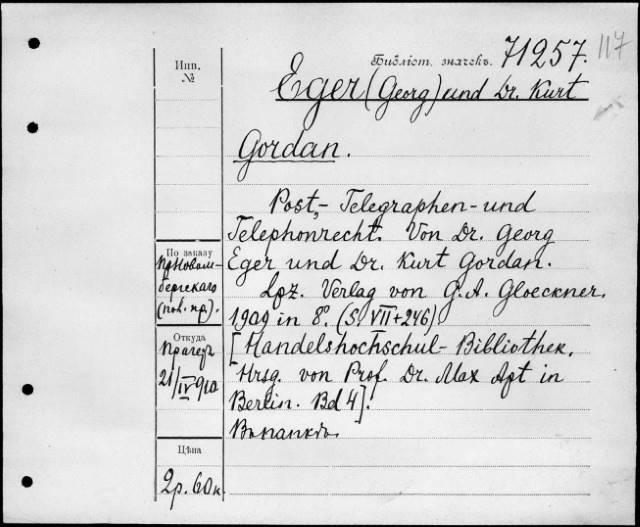 117
Инв.
№
Библіот. значекъ. 71257.
Eger (Georg) und Dr. Kurt
Gordan.
Post,- Telegraphen- und
Telephonrecht. Von Dr. Georg
Eger und Dr. Kurt Gordan.
Lpz. Verlag von G. A. Gloeckner.
1909 in 8°. (S. VII+246)
[Handelshochschul-Bibliothek.
Hrsg. von Prof. Dr. Max Apt in
Berlin. Bd 4].
Въ папкѣ.
По заказу
пр. Новом-
бергскаго
(пок. пр.).
Откуда
Прагеръ
21/IV 910
Цѣна
2р. 60к